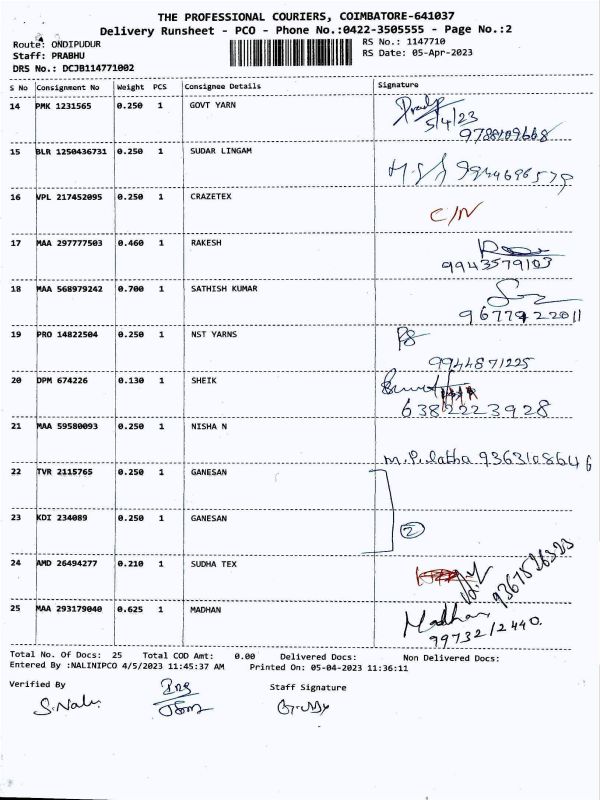 THE PROFESSIONAL COURIERS, COIMBATORE-641037
Delivery Runsheet - PCO - Phone No.:0422-3505555 - Page No.:2
Route: ONDIPUDUR RS No.: 1147710
Staff: PRABHU RS Date: 05-Apr-2023
DRS No.: DCJB114771002
S No Consignment No Weight PCS Consignee Details Signature
14 PMK 1231565 0.250 1 GOVT YARN
5/4/23
9788109668
15 BLR 1250436731 0.250 1 SUDAR LINGAM
9944696579
16 VPL 217452095 0.250 1 CRAZETEX C/N
17 MAA 297777503 0.460 1 RAKESH
9943579103
18 MAA 568979242 0.700 1 SATHISH KUMAR
19 PRO 14822504 0.250 1 NST YARNS
9944871225
20 DPM 674226 0.130 1 SHEIK
6382223928
21 MAA 59580093 0.250 1 NISHA N
M.P.latha 9363108646
22 TVR 2115765 0.250 1 GANESAN
23 KDI 234089 0.250 1 GANESAN 2
24 AMD 26494277 0.210 1 SUDHA TEX
25 MAA 293179040 0.625 1 MADHAN Madhan
9973212440.
Total No. Of Docs: 25 Total COD Amt: 0.00 Delivered Docs: Non Delivered Docs:
Entered By :NALINIPCO 4/5/2023 11:45:37 AM Printed On: 05-04-2023 11:36:11
Verified By Staff Signature
S.Nalini